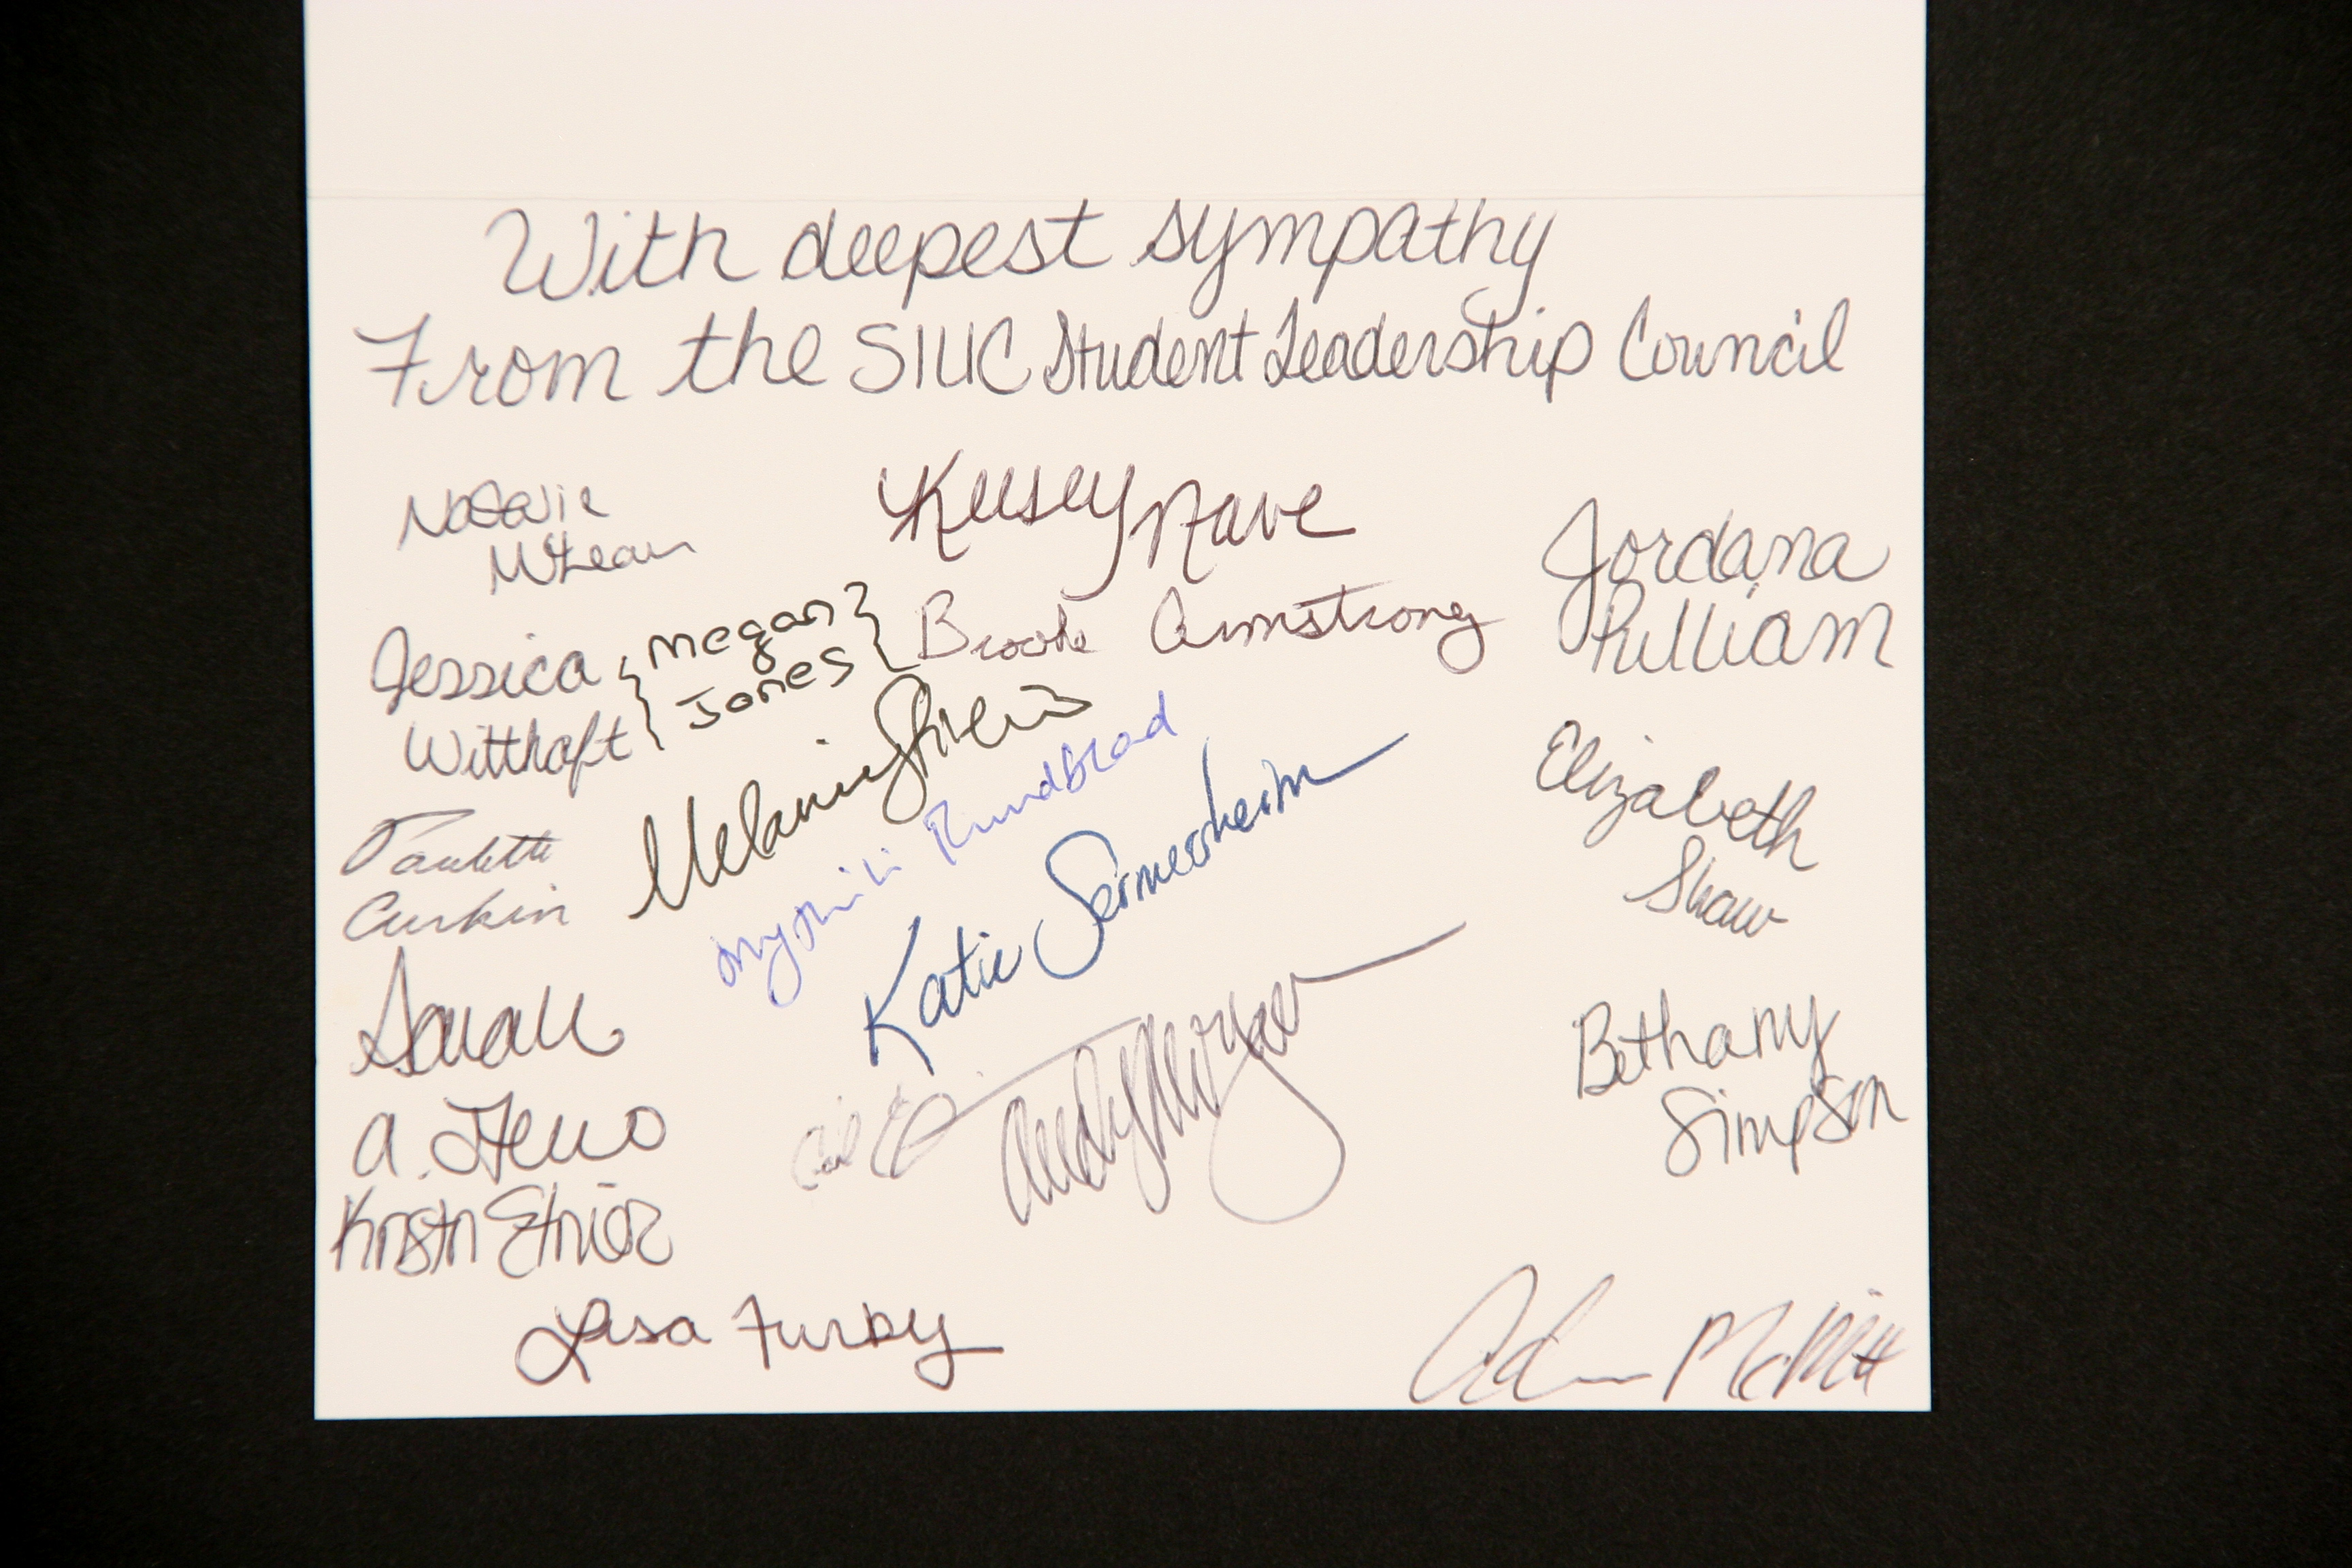 With deepest sympathy
From the SIUC Student Leadership Council
Natalie
McLean
Kelsey Nave
Jordana
Pulliam
Jessica
Witthaft
{ Megan }
{ Jones }
Brooke Armstrong
Melanie
Rundblad
Katie Sermersheim
Elizabeth
Shaw
Paulette
Curkin
Sarah
A.
Andy Morgan
Bethany
Simpson
Kristn Etnier
Lisa Furby
Adam